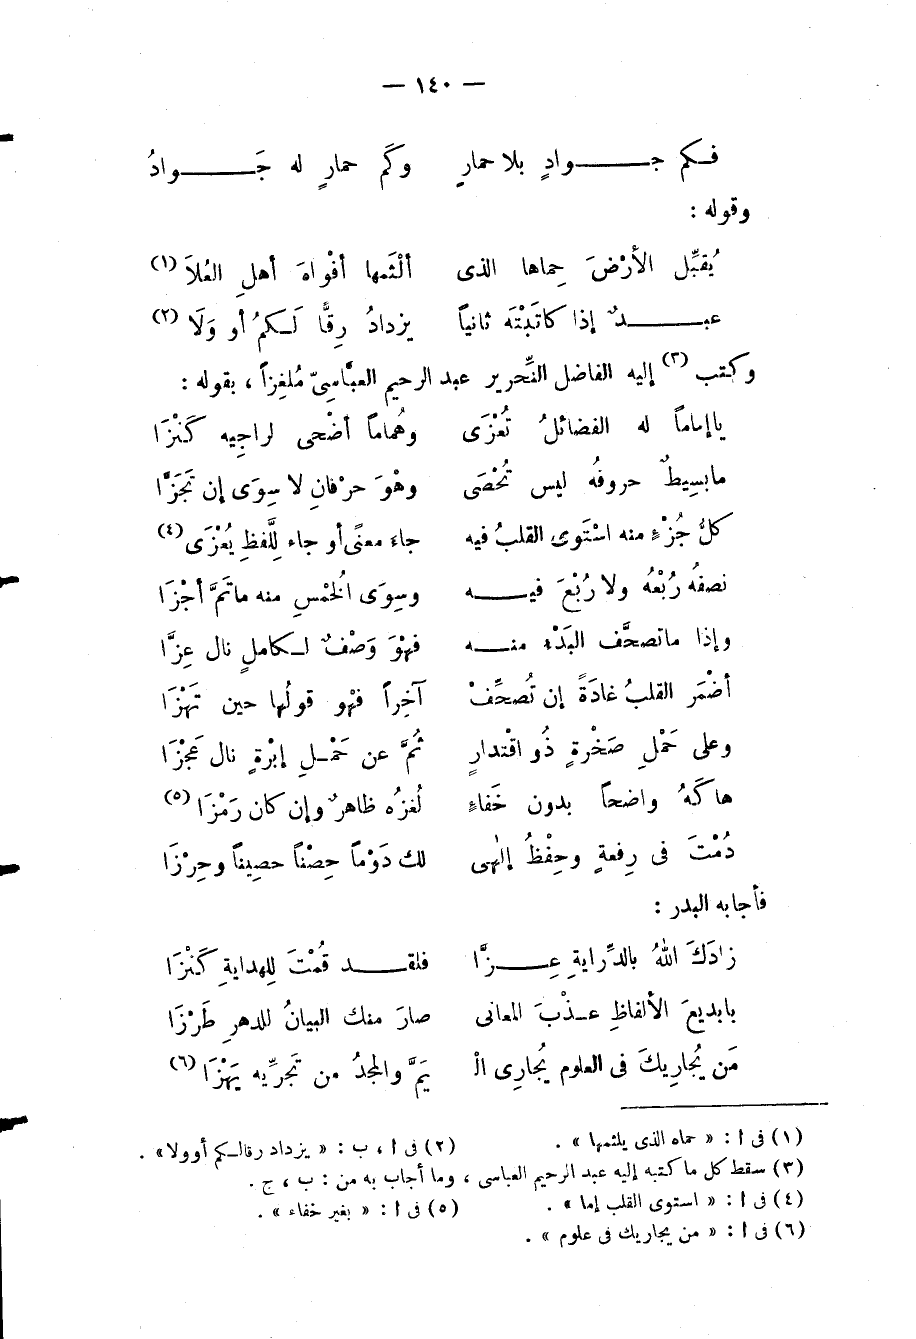 — ١٤٠ —
فـكم جـــوادٍ بلا حمارٍ وكَم حمارٍ له جَـــوادُ
وقوله :
يُقبِّل الأرْضَ حِماها الذى ألْثَمها أفْواهَ أهلِ العُلاَ (١)
عبــدٌ إذا كاتَبْتَه ثانياً يزدادُ رِقًّا لَـكمُ أو وَلَا (٢)
وكتب (٣) إليه الفاضل النِّحرير عبد الرحيم العبَّاسِىّ مُلغِزاً ، بقوله :
يا إماماً له الفضائلُ تُعْزَى وهُماماً أضْحى لراجِيه كَنْزَا
ما بسِيطٌ حروفُه ليس تُحْصَى وهْوَ حرْفانِ لا سِوَى إن تَجَزَّا
كلُّ جُزْءٍ منه اسْتَوى القلبُ فيه جاءَ معنًى أو جاء لِلَّفظِ يُعْزَى (٤)
نصفُه رُبْعُه ولا رُبْعَ فيــه وسِوَى الُخمْسِ منه ما تَمَّ أجْزَا
وإذا ما تصحَّف البَدْء منــه فهْوَ وَصْفٌ لـكاملٍ نال عِزَّا
أضْمَر القلبُ غادَةً إن تُصحِّفْ آخِراً فهْو قولُها حين تَهْزَا
وعلى حَمْلِ صَخْرةٍ ذُو اقْتدارٍ ثُمَّ عن حَمْـلِ إبْرةٍ نال عَجْزَا
هاكَهُ واضحاً بدون خَفاءٍ لُغزُه ظاهرٌ وإن كان رَمْزَا (٥)
دُمْتَ فى رِفعةٍ وحِفْظُ إلٰهى لك دَوْماً حِصْناً حصِيناً وحِرْزَا
فأجابه البدر :
زادَكَ اللهُ بالدِّرايةِ عِــزًّا فلقــد قُمْتَ لِلهدايةِ كَنْزَا
يابديعَ الألفاظِ عـذْبَ المعانى صارَ منك البيانُ للدهرِ طَرْزَا
مَن يُجارِيكَ فى العلوم يُجارِى الْ يَمَّ والمجدُ من تَجرِّيه يَهْزَا (٦)
(١) فى ا : « حماه الذى يلثمها » . (٢) فى ا ، ب : « يزداد رقالـكم أوولا» .
(٣) سقط كل ما كتبه إليه عبد الرحيم العباسى ، وما أجاب به من : ب ، ج .
(٤) فى ا : « استوى القلب إما » . (٥) فى ا : « بغير خفاء » .
(٦) فى ا : « من يجاريك فى علوم » .